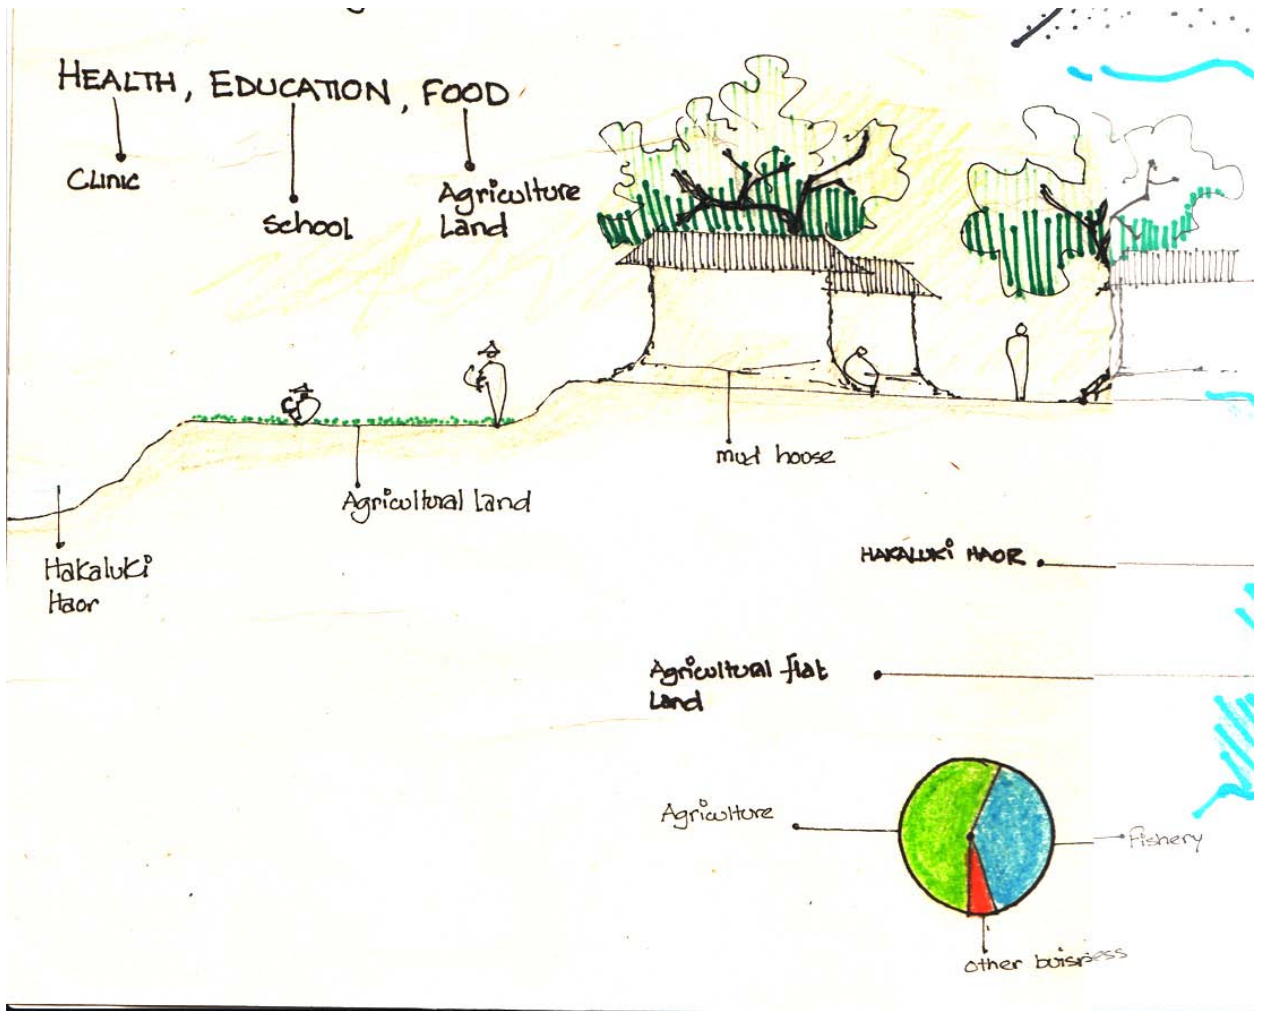 HEALTH, EDUCATION, FOOD
Clinic
School
Agriculture
Land
mud hoose
Agricultural land
Hakaluki
Haor
HAKALUKI HAOR
Agricultural flat
Land
Agriculture
Fishery
other buisness